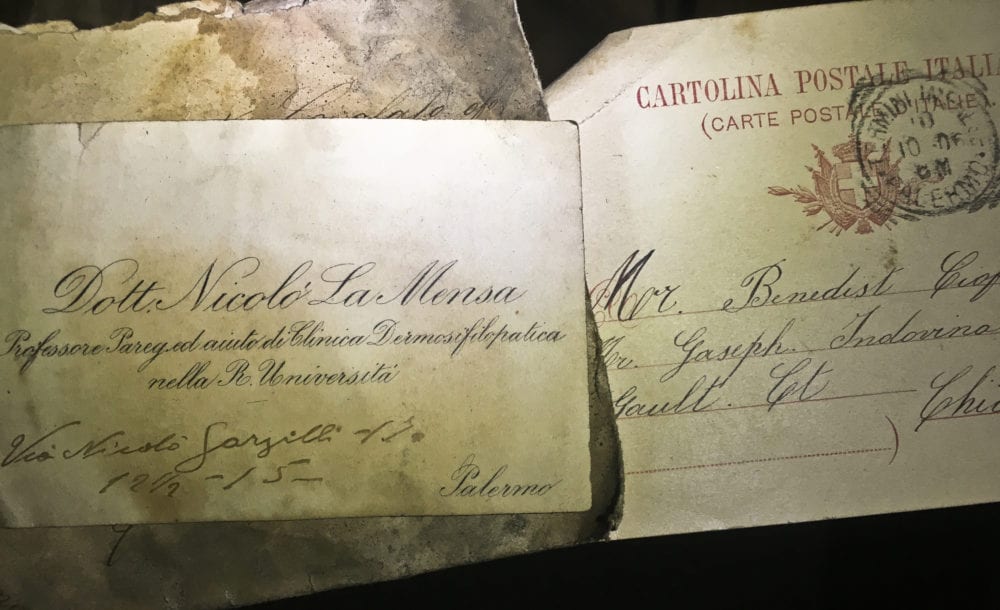 Dott. Nicolò La Mensa
Professore Pareg. ed aiuto di Clinica Dermosifilopatica
nella R. Università
Via Nicolò Garzilli
12½ - 15
Palermo
CARTOLINA POSTALE ITALIA
(CARTE POSTALE ITALIE)
10
10 06
8M
PALERMO
Mor. Benedist
Mr. Gaseph. Indovina
Gault. Ct Chic